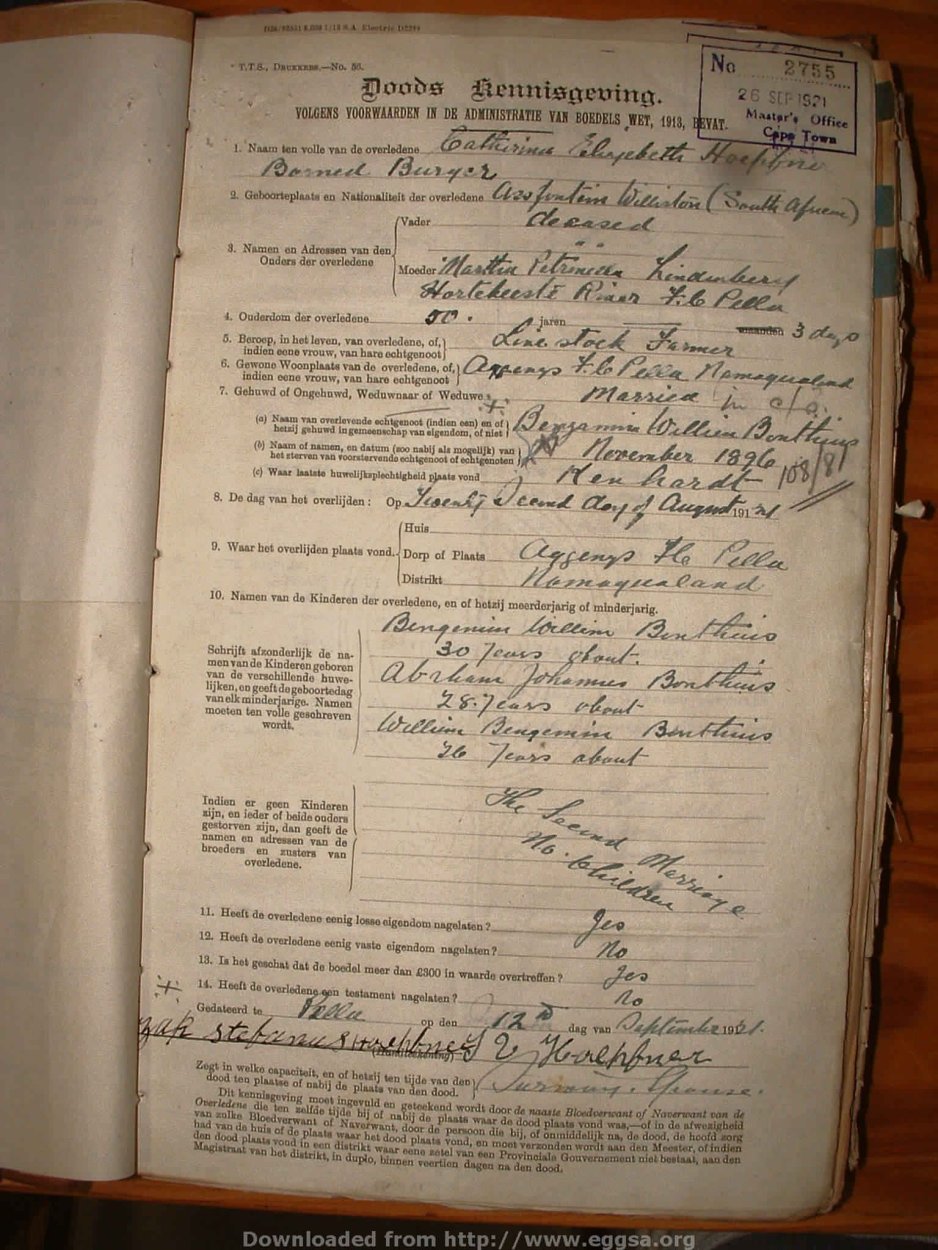 T.T.S., DRUKKERS.—No. 56.
No 2755
26 SEP 1921
Master's Office
Cape Town
Doods Kennisgeving.
VOLGENS VOORWAARDEN IN DE ADMINISTRATIE VAN BOEDELS WET, 1913, BEVAT.
1. Naam ten volle van de overledene Catherina Elizebeth Hoepfner
Borned Burger
2. Geboorteplaats en Nationaliteit der overledene Assfontein Williston (South Africa)
3. Namen en Adressen van den Ouders der overledene
Vader deceased
Moeder Martha Petronella Lindenberg
Hartebeeste River F.C Pella
4. Ouderdom der overledene 50. jaren maanden 3 days
5. Beroep, in het leven, van overledene, of, indien eene vrouw, van hare echtgenoot
Live stock Farmer
6. Gewone Woonplaats van de overledene, of, indien eene vrouw, van hare echtgenoot
Aggenys F.C Pella Namaqualand
7. Gehuwd of Ongehuwd, Weduwnaar of Weduwe Married in c/o.
(a) Naam van overlevende echtgenoot (indien een) en of hetzij gehuwd in gemeenschap van eigendom, of niet
Bengamin Willem Bonthuys
(b) Naam of namen, en datum (zoo nabij als mogelijk) van het sterven van voorstervende echtgenoot of echtgenoten
November 1896
108/81
(c) Waar laatste huwelijksplechtigheid plaats vond Kenhardt
8. De dag van het overlijden: Op Twenty Second day of August 191 21
9. Waar het overlijden plaats vond.
Huis
Dorp of Plaats Aggenys F.C Pella
Distrikt Namaqualand
10. Namen van de Kinderen der overledene, en of hetzij meerderjarig of minderjarig.
Schrijft afzonderlijk de na-
men van de Kinderen geboren
van de verschillende huwe-
lijken, en geeft de geboortedag
van elk minderjarige. Namen
moeten ten volle geschreven
wordt.
Bengemin Willem Bonthuis
30 Years about.
Abraham Johannes Bonthuis
28. Years about
Willem Bengemin Bonthuis
26 Years about
Indien er geen Kinderen
zijn, en ieder of beide ouders
gestorven zijn, dan geeft de
namen en adressen van de
broeders en zusters van
overledene.
The Second Marriage
No. Children
11. Heeft de overledene eenig losse eigendom nagelaten? Yes
12. Heeft de overledene eenig vaste eigendom nagelaten? No
13. Is het geschat dat de boedel meer dan £300 in waarde overtreffen? Yes
14. Heeft de overledene een testament nagelaten? No
Gedateerd te Pella op den 12 dag van September 1921.
stefanus Hoepfner
(Handtekening)
Hoepfner
Zegt in welke capaciteit, en of hetzij ten tijde van den
dood ten plaatse of nabij de plaats van den dood.
Surviving Spouse.
Dit kennisgeving moet ingevuld en geteekend wordt door de naaste Bloedverwant of Naverwant van de
Overledene die ten zelfde tijde bij of nabij de plaats waar de dood plaats vond was,—of in de afwezigheid
van zulke Bloedverwant of Naverwant, door de persoon die bij, of onmiddelijk na, de dood, de hoofd zorg
had van de huis of de plaats waar het dood plaats vond, en moet verzonden wordt aan den Meester, of indien
den dood plaats vond in een distrikt waar eene zetel van een Provinciale Gouvernement niet bestaat, aan den
Magistraat van het distrikt, in duplo, binnen veertien dagen na den dood.
Downloaded from http://www.eggsa.org